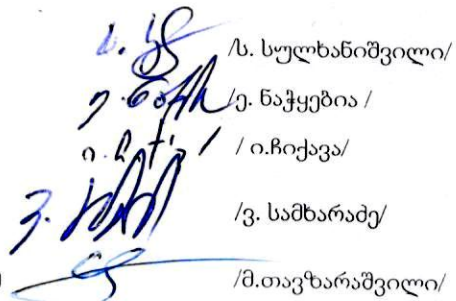 /ს. სულხანიშვილი/
/ე. ნაჭყებია /
/ ი.ჩიქავა/
/ვ. სამხარაძე/
/მ.თავზარაშვილი/